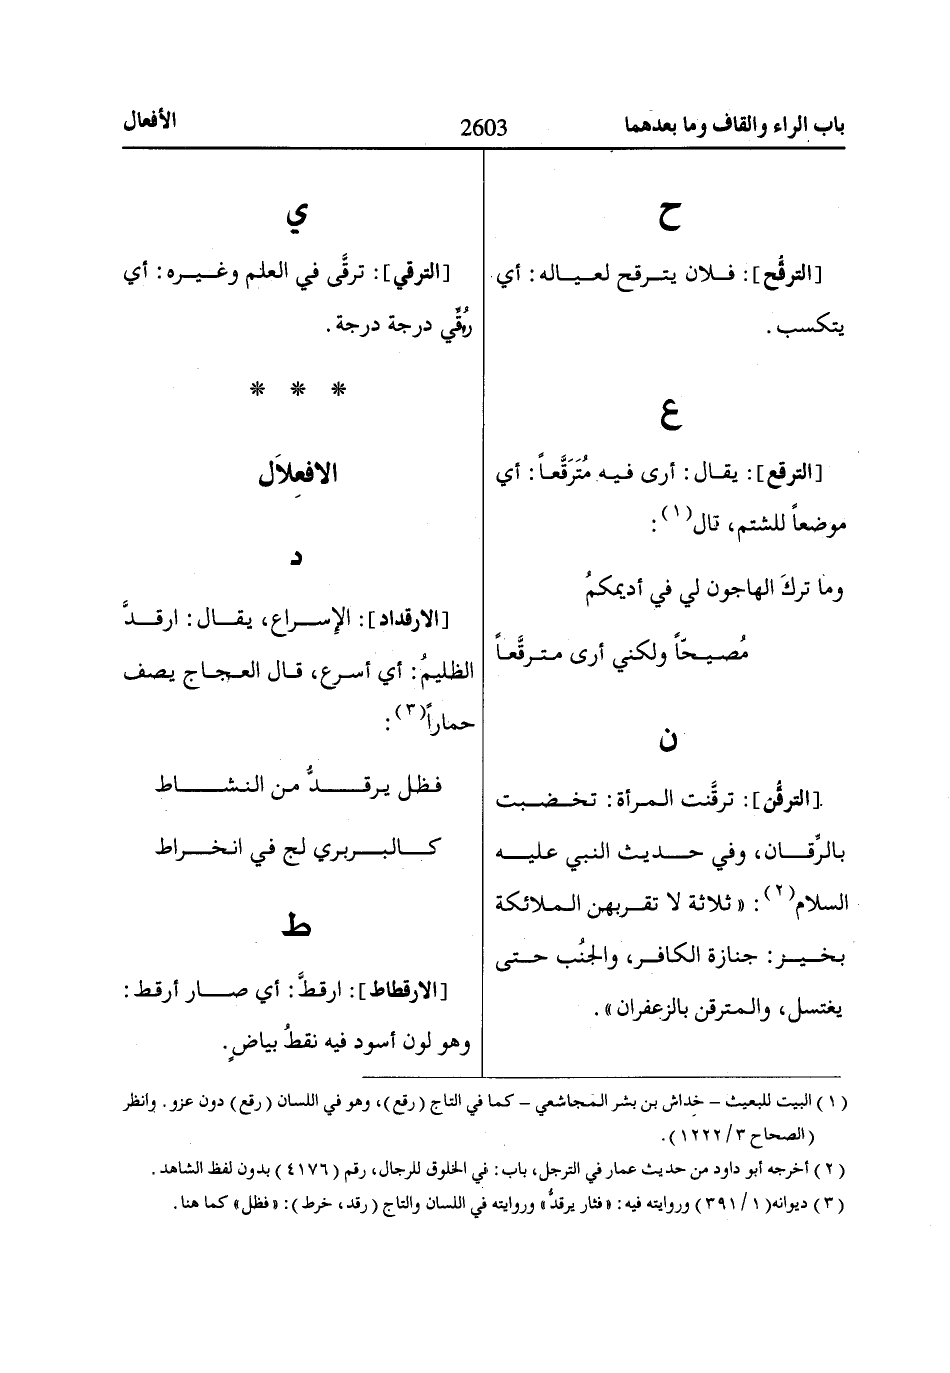 باب الراء والقاف وما بعدهما
2603
الأفعال
ح
[الترقُّح]: فلان يترقح لعياله: أي
يتكسب.
ع
[الترقع]: يقال: أرى فيه مُتَرَقَّعاً: أي
موضعاً للشتم، قال(١):
وما تركَ الهاجون لي في أديمكمُ
مُصيحّاً ولكني أرى مترقَّعاً
ن
[الترقُّن]: ترقَّنت المرأة: تخضبت
بالرِّقان، وفي حديث النبي عليه
السلام(٢): «ثلاثة لا تقربهن الملائكة
بخير: جنازة الكافر، والجنُب حتى
يغتسل، والمترقن بالزعفران».
ي
[الترقي]: ترقَّى في العلم وغيره: أي
رُقِّي درجة درجة.
* * *
الافعلاَل
د
[الارقداد]: الإسراع، يقال: ارقدَّ
الظليمُ: أي أسرع، قال العجاج يصف
حماراً(٣):
فظل يرقدُّ من النشاط
كالبربري لج في انخراط
ط
[الارقطاط]: ارقطَّ: أي صار أرقط:
وهو لون أسود فيه نقطُ بياضٍ.
(١) البيت للبعيث – خداش بن بشر المجاشعي – كما في التاج (رقع)، وهو في اللسان (رقع) دون عزو. وانظر
(الصحاح ٣/ ١٢٢٢).
(٢) أخرجه أبو داود من حديث عمار في الترجل، باب: في الخلوق للرجال، رقم (٤١٧٦) بدون لفظ الشاهد.
(٣) ديوانه( ١/ ٣٩١) وروايته فيه: «فثار يرقدُّ» وروايته في اللسان والتاج (رقد، خرط): «فظل» كما هنا.